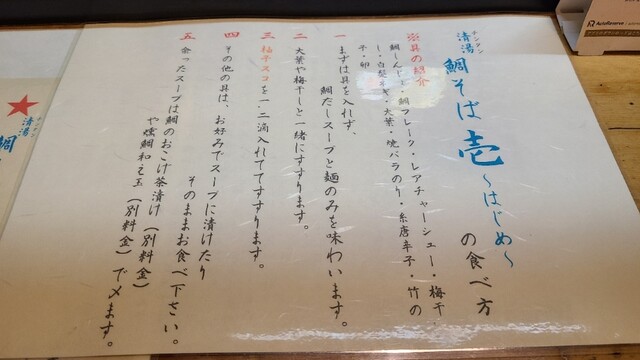 清湯
チンタン
鯛そば 壱 〜はじめ〜
の食べ方
※具の紹介
鯛しんじょ・鯛フレーク・レアチャーシュー・梅干
し・白髪ネギ・大葉・焼バラのり・糸唐辛子・竹の
子・卵
一 まずは具を入れず、
鯛だしスープと麺のみを味わいます。
二 大葉や梅干しと一緒にすすります。
三 梅干スコを一・二滴入れてすすります。
四 その他の具は、お好みでスープに漬けたり
そのままお食べ下さい。
五 余ったスープは鯛のおこげ茶漬け(別料金)
や燻鯛和え玉(別料金)で〆ます。
★
清湯
チンタン
鯛
AutoReserve